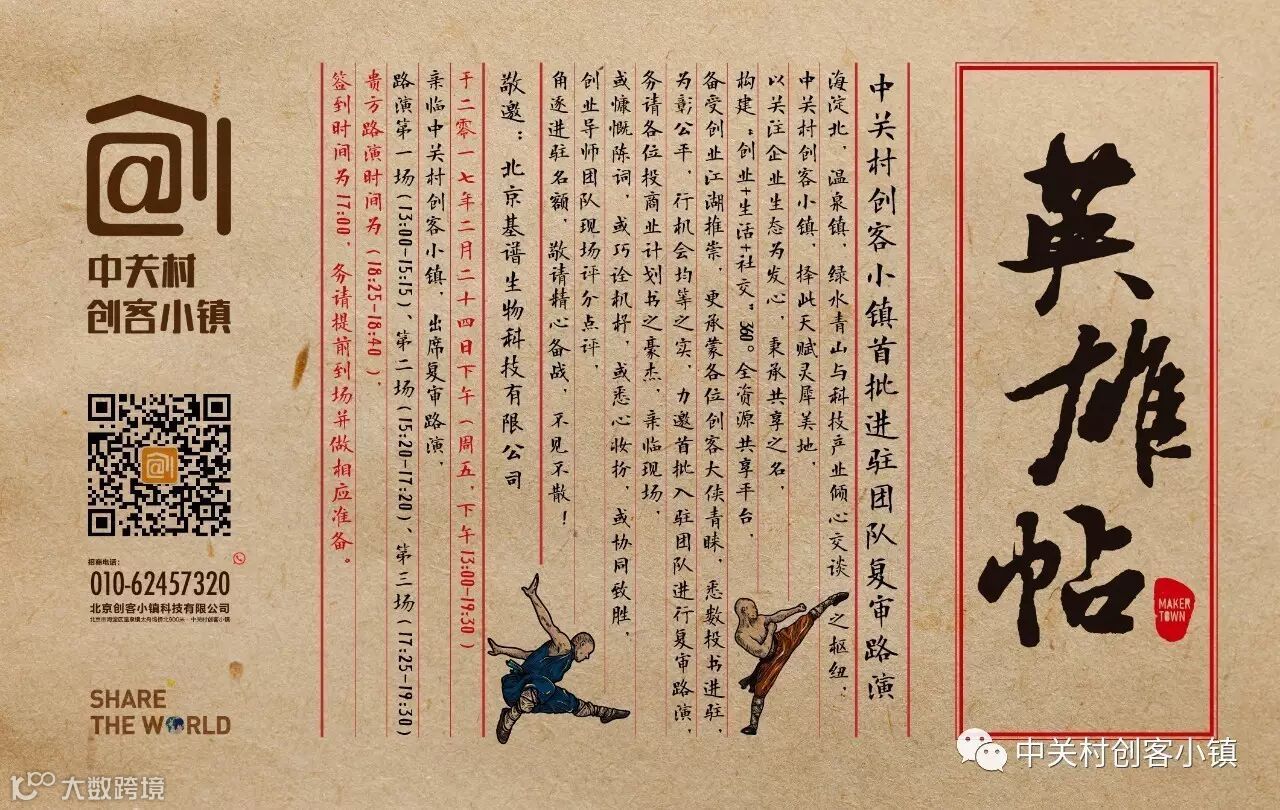 英雄帖
MAKER
TOWN
中关村创客小镇首批进驻团队复审路演
海淀北，温泉镇，绿水青山与科技产业倾心交谈之枢纽，
中关村创客小镇，择此天赋灵犀美地，
以关注企业生态为发心，秉承共享之名，
构建“创业+生活+社交”360°全资源共享平台，
备受创业江湖推崇，更承蒙各位创客大侠青睐，悉数投书进驻，
为彰公平，行机会均等之实，力邀首批入驻团队进行复审路演，
务请各位投商业计划书之豪杰，亲临现场，
或慷慨陈词，或巧诠机杼，或悉心妆扮，或协同致胜，
创业导师团队现场评分点评，
角逐进驻名额，敬请精心备战，不见不散！
敬邀：北京基谱生物科技有限公司
于二零一七年二月二十四日下午（周五，下午13:00-19:30）
亲临中关村创客小镇，出席复审路演，
路演第一场(13:00-15:15)、第二场(15:20-17:20)、第三场(17:25-19:30)
贵方路演时间为(18:25-18:40)，
签到时间为17:00，务请提前到场并做相应准备。
@创
中关村
创客小镇
招商电话：
010-62457320
北京创客小镇科技有限公司
北京市海淀区温泉镇太舟坞桥北900米 中关村创客小镇
SHARE
THE WORLD
中关村创客小镇
大数跨境